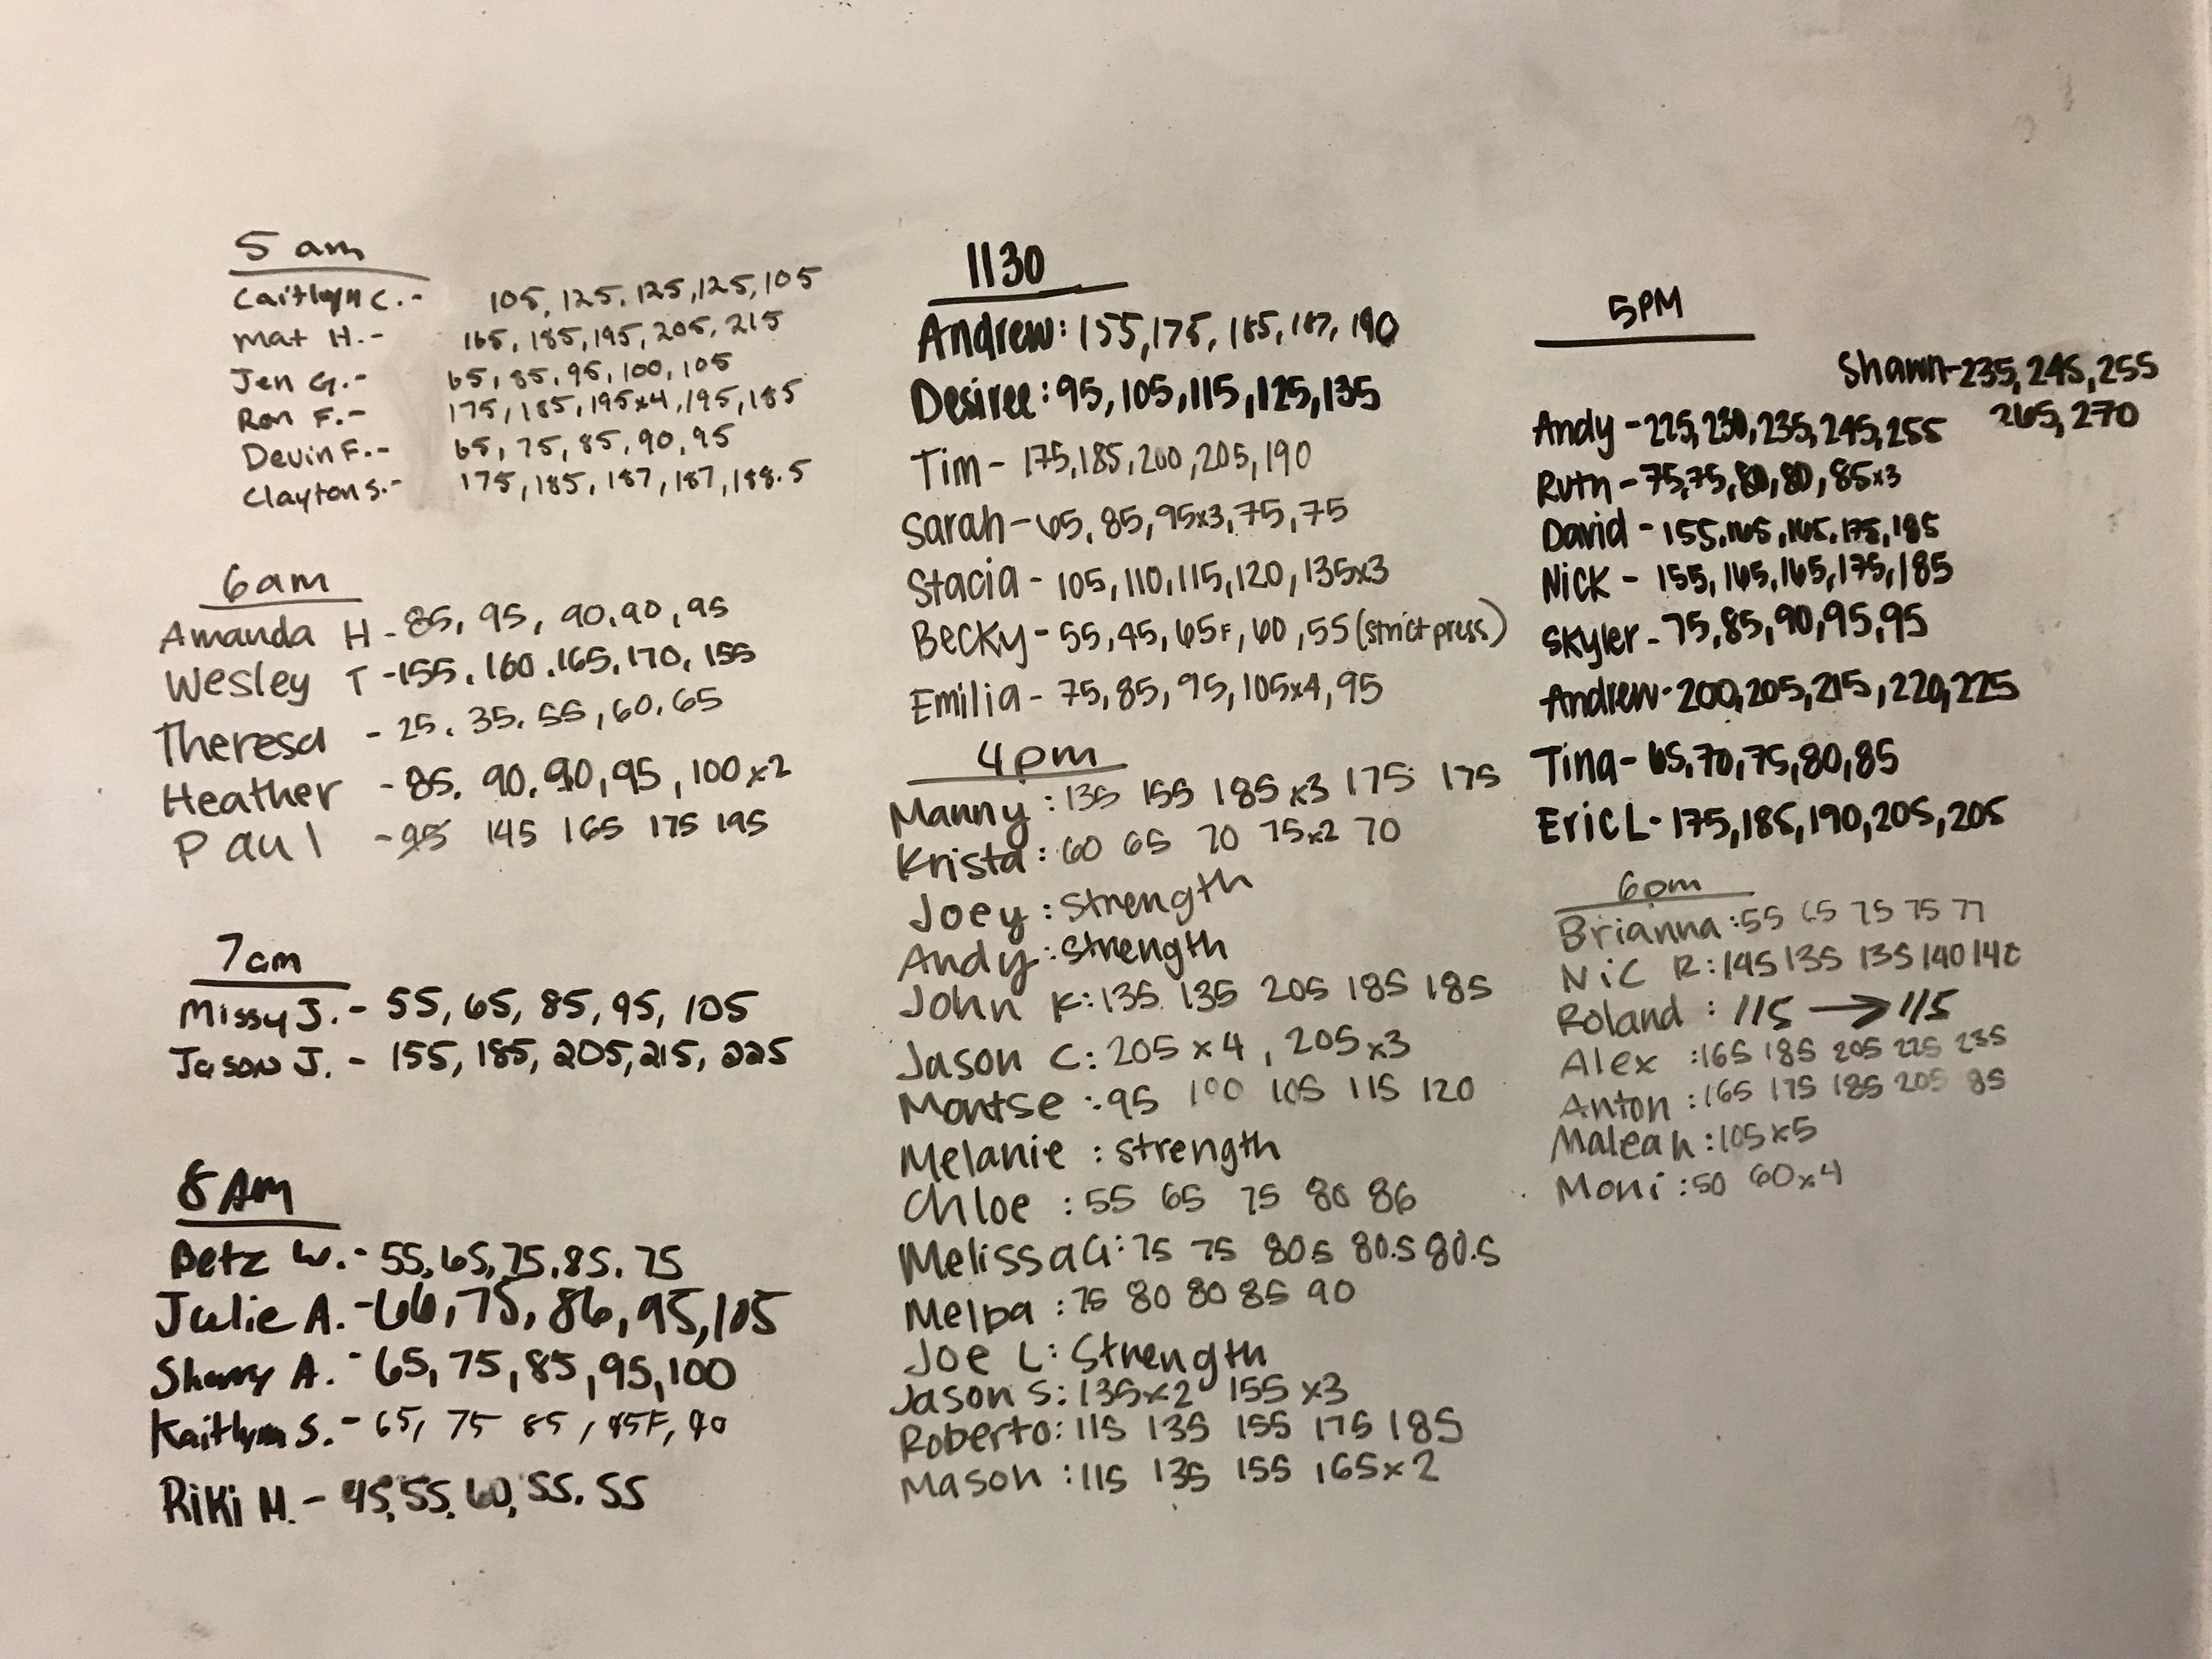 5 am
Caitlyn C.- 105, 125, 125, 125, 105
Mat H.- 165, 185, 195, 205, 215
Jen G.- 65, 85, 95, 100, 105
Ron F.- 175, 185, 195x4, 195, 185
Devin F.- 65, 75, 85, 90, 95
Clayton S.- 175, 185, 187, 187, 188.5
6am
Amanda H - 85, 95, 90, 90, 95
Wesley T - 155, 160, 165, 170, 155
Theresa - 25, 35, 55, 60, 65
Heather - 85, 90, 90, 95, 100x2
Paul - 95 145 165 175 195
7am
Missy J. - 55, 65, 85, 95, 105
Jason J. - 155, 185, 205, 215, 225
8 AM
Betz W. - 55, 65, 75, 85, 75
Julie A. - 66, 75, 86, 95, 105
Sherry A. - 65, 75, 85, 95, 100
Kaitlynn S. - 65, 75 85, 95F, 90
Riki M. - 45, 55, 60, 55, 55
1130
Andrew: 155, 175, 185, 187, 190
Desiree: 95, 105, 115, 125, 135
Tim - 175, 185, 200, 205, 190
Sarah - 65, 85, 95x3, 75, 75
Stacia - 105, 110, 115, 120, 135x3
Becky - 55, 45, 65F, 60, 55 (strict press)
Emilia - 75, 85, 95, 105x4, 95
4pm
Manny: 135 155 185x3 175 175
Krista: 60 65 70 75x2 70
Joey: Strength
Andy: Strength
John K: 135 135 205 185 185
Jason C: 205x4, 205x3
Montse: 95 100 105 115 120
Melanie: Strength
Chloe: 55 65 75 80 86
Melissa G: 75 75 80.5 80.5 80.5
Melba: 75 80 80 85 90
Joe L: Strength
Jason S: 135x2 155x3
Roberto: 115 135 155 175 185
Mason: 115 135 155 165x2
5PM
Shawn - 235, 245, 255
265, 270
Andy - 225, 230, 235, 245, 255
Ruth - 75, 75, 80, 80, 85x3
David - 155, 165, 165, 175, 185
Nick - 155, 165, 165, 175, 185
Skyler - 75, 85, 90, 95, 95
Andrew - 200, 205, 215, 220, 225
Tina - 65, 70, 75, 80, 85
Eric L - 175, 185, 190, 205, 205
6pm
Brianna: 55 65 75 75 77
Nic R: 145 135 135 140 140
Roland: 115 → 115
Alex: 165 185 205 225 235
Anton: 165 175 185 205 85
Maleah: 105x5
Moni: 50 60x4